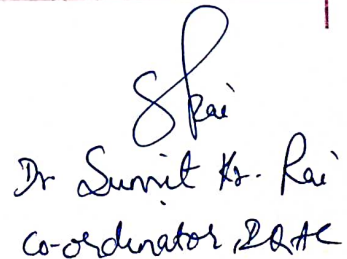 SRai
Dr Sumit Kr. Rai
Co-ordinator, IQAC